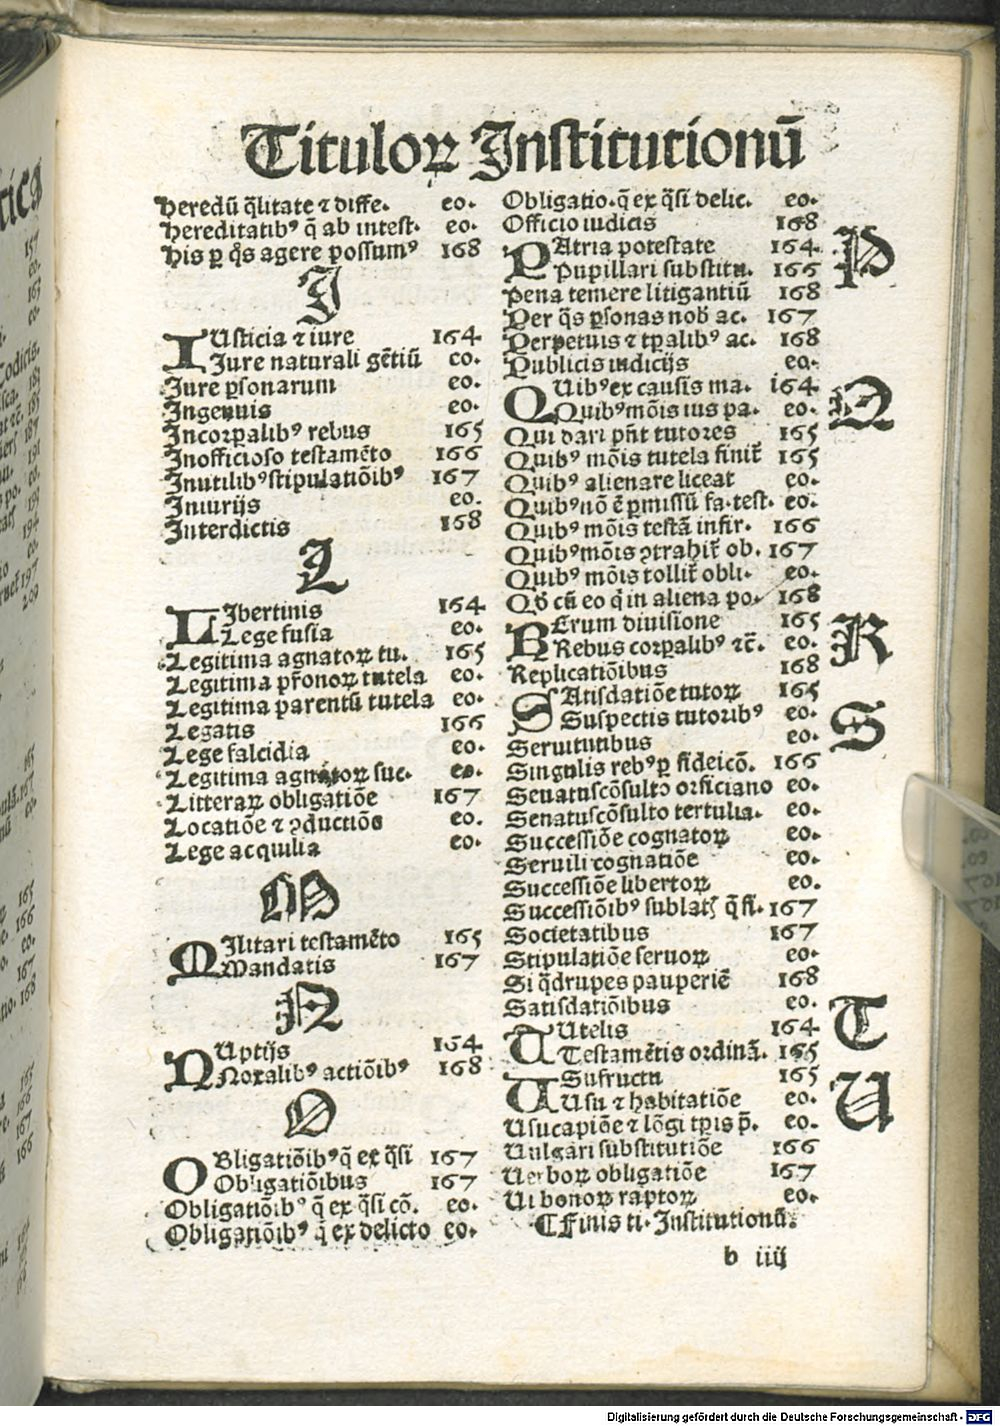 Titulorꝝ Institutionū
Heredū q̄litate ⁊ diffe. eo.
Hereditatibꝰ q̄ ab intest. eo.
His ꝑ q̄s agere possumꝰ 168
I
IUsticia ⁊ iure 164
Iure naturali gētiū eo.
Iure ꝑsonarum eo.
Ingenuis eo.
Incorꝑalibꝰ rebus 165
Inofficioso testamēto 166
Inutilibꝰ stipulatiōibꝰ 167
Iniurijs eo.
Interdictis 168
L
LIbertinis 164
Lege fusia eo.
Legitima agnatoꝝ tu. 165
Legitima pr̄onoꝝ tutela eo.
Legitima parentū tutela eo.
Legatis 166
Lege falcidia eo.
Legitima agnatoꝝ suc. eo.
Litteraꝝ obligatiōe 167
Locatiōe ⁊ ꝯductiōe eo.
Lege acquilia eo.
M
MIlitari testamēto 165
Mandatis 167
N
NUptijs 164
Noxalibꝰ actiōibꝰ 168
O
OBligatiōibꝰ q̄ ex q̄si 167
Obligatiōibus 167
Obligatiōibꝰ q̄ ex q̄si cō. eo.
Obligatiōibꝰ q̄ ex delicto eo.
Obligatio. q̄ ex q̄si delic. eo.
Officio iudicis 168
P
PAtria potestate 164
Pupillari substitu. 166
Pena temere litigantiū 168
Per q̄s ꝑsonas nob̄ ac. 167
Perpetuis ⁊ tꝑalibꝰ ac. 168
Publicis iudicijs eo.
Q
QUibꝰ ex causis ma. 164
Quibꝰ mōis ius pa. eo.
Qui dari pn̄t tutores 165
Quibꝰ mōis tutela finit̄ 165
Quibꝰ alienare liceat eo.
Quibꝰ nō ē ꝑmissū fa. test. eo.
Quibꝰ mōis testā infir. 166
Quibꝰ mōis ꝯtrahit̄ ob. 167
Quibꝰ mōis tollit̄ obli. eo.
Qď cū eo q̇ in aliena po. 168
R
RErum diuisione 165
Rebus corꝑalibꝰ ⁊c̄. eo.
Replicatiōibus 168
S
SAtisdatiōe tutoꝝ 165
Suspectis tutoribꝰ eo.
Seruitutibus eo.
Singulis rebꝰ ꝑ fideicō. 166
Senatuscōsulto orficiano eo.
Senatuscōsulto tertulia. eo.
Successiōe cognatoꝝ eo.
Seruili cognatiōe eo.
Successiōe libertoꝝ eo.
Successiōibꝰ sublatꝭ q̄ fi. 167
Societatibus 167
Stipulatiōe seruoꝝ eo.
Si q̄drupes pauperiē 168
Satisdatiōibus eo.
T
TUtelis 164
Testamētis ordinā. 165
U
USufructu 165
Usu ⁊ habitatiōe eo.
Usucapiōe ⁊ lōgi tꝑis p̄. eo.
Uulgari substitutiōe 166
Uerboꝝ obligatiōe 167
Ui bonoꝝ raptoꝝ eo.
⸿Finis ti. Institutionū.
b iiij
Digitalisierung gefördert durch die Deutsche Forschungsgemeinschaft - DFG